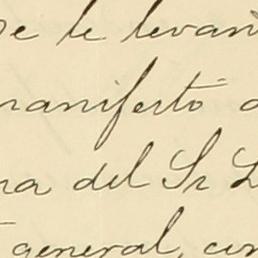 se le levan
manifestó a
na del Sr D
general, con